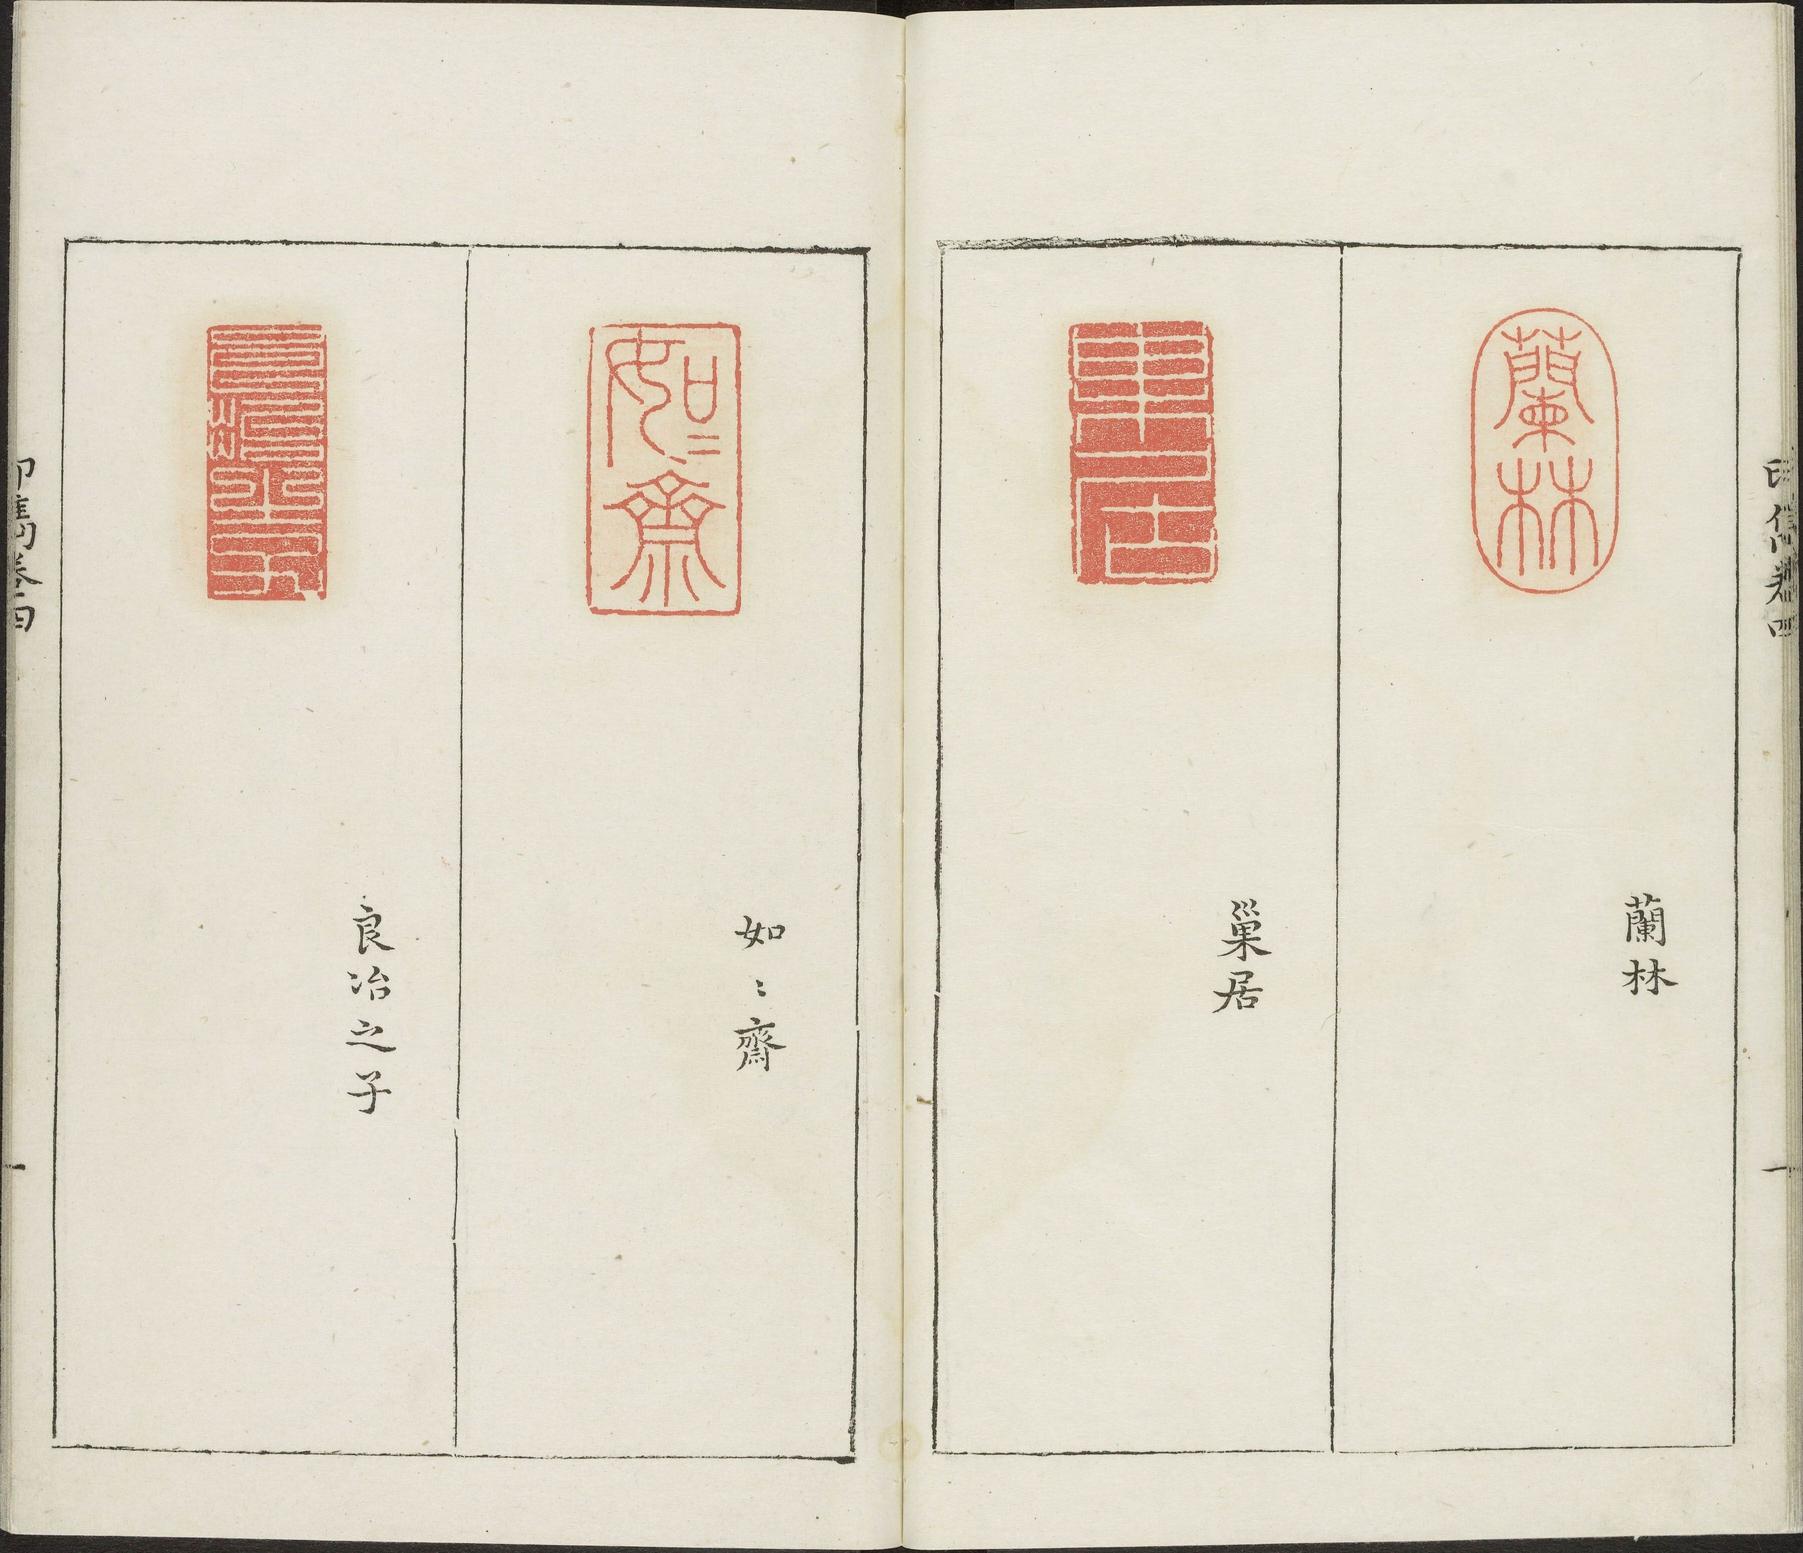 蘭林
蘭林
巢居
巢居
如〻齋
如〻齋
良冶之子
良冶之子
印雋卷四
一